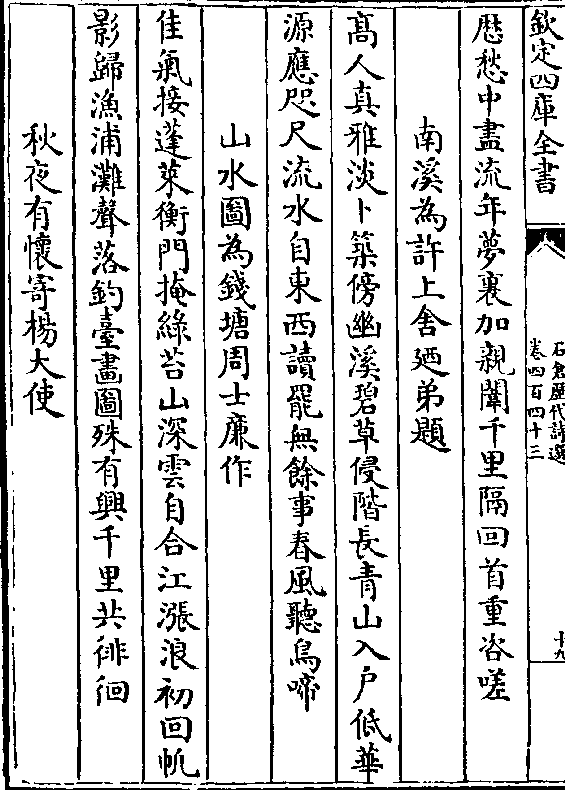 欽定四庫全書
石倉歴代詩選
卷四百四十三
十九
厯愁中盡流年夢裏加親闈千里隔回首重咨嗟
南溪為許上舍廼弟題
髙人真雅淡卜築傍幽溪碧草侵階長青山入户低華
源應咫尺流水自東西讀罷無餘事春風聽鳥啼
山水圖為錢塘周士廉作
佳氣接蓬萊衡門掩緑苔山深雲自合江漲浪初回帆
影歸漁浦灘聲落釣臺畫圖殊有興千里共徘徊
秋夜有懷寄楊大使